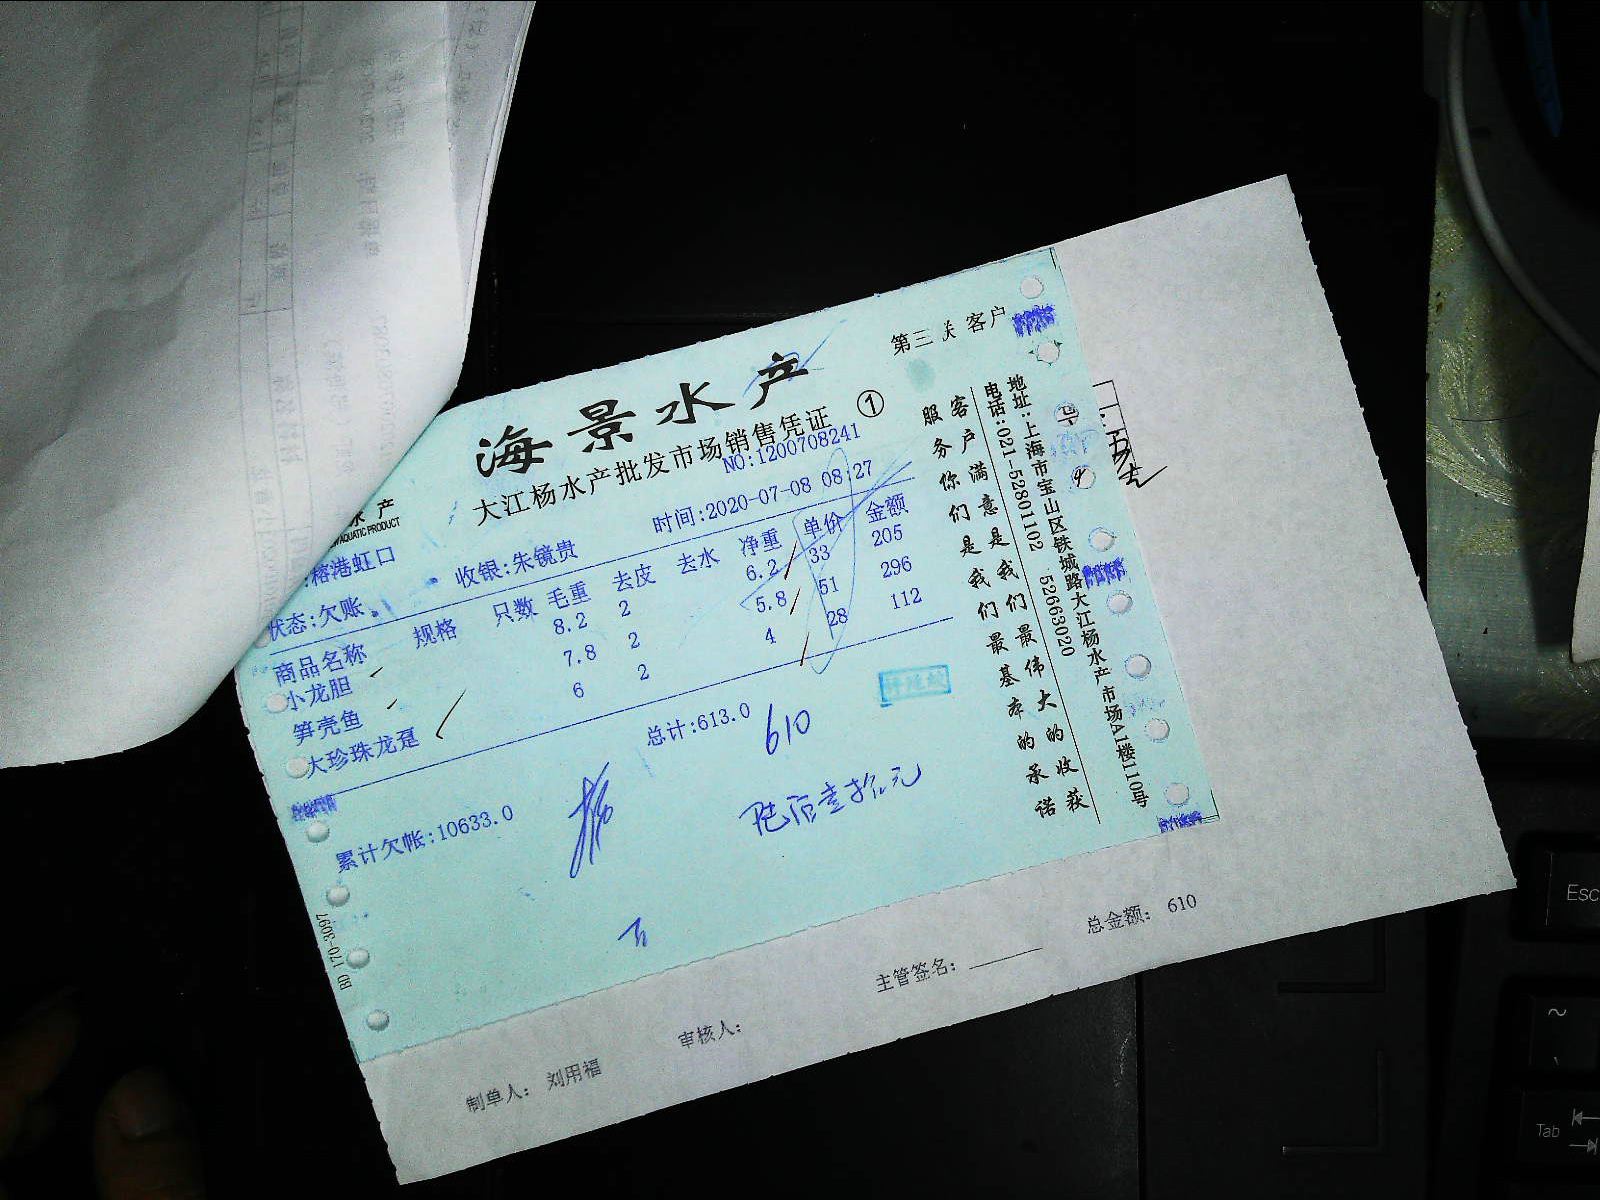 第三联 客户
海景水产
大江杨水产批发市场销售凭证 ①
NO:1200708241
水产
AQUATIC PRODUCT
时间:2020-07-08 08:27
榕港虹口
收银:朱镜贵
状态:欠账
商品名称 规格 只数 毛重 去皮 去水 净重 单价 金额
小龙胆 8.2 2 6.2 33 205
笋壳鱼 7.8 2 5.8 51 296
大珍珠龙趸 6 2 4 28 112
总计:613.0
610
陆佰壹拾元
累计欠帐:10633.0
地址:上海市宝山区铁城路大江杨水产市场A1楼110号
电话:021-52801102 52663020
客户满意是我们最伟大的收获
服务你们是我们最基本的承诺
BD 170-3097
制单人: 刘用福
审核人:
主管签名:
总金额: 610